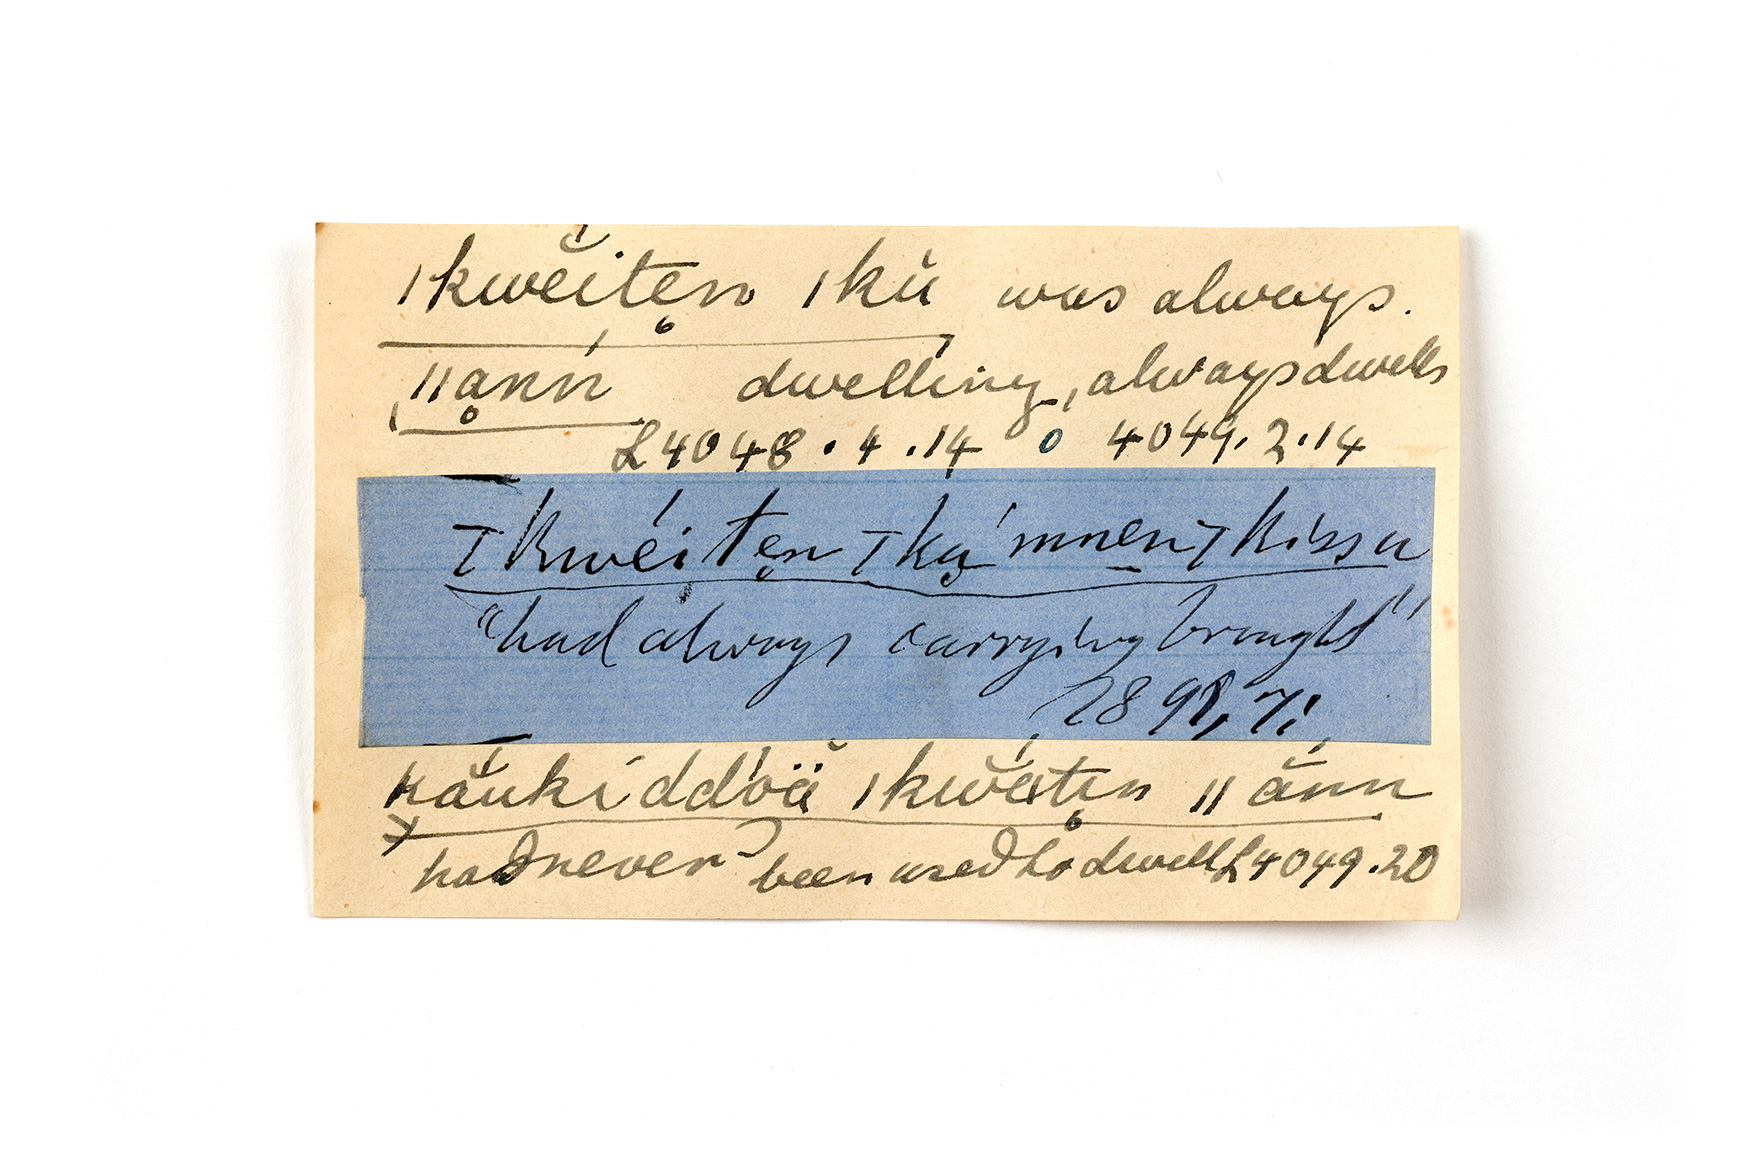 ǀkwĕitẹn ǀkù was always.
ǁạnń dwelling, always dwells
L4048.4.14 o 4049.2.14
⊤kwéitẹn ⊤kạ́mnen ⊤kíssu
"had always carrying brought"
2898,7,
ǀkwĕitẹn ǁănn
had never been used to dwell L4049.20